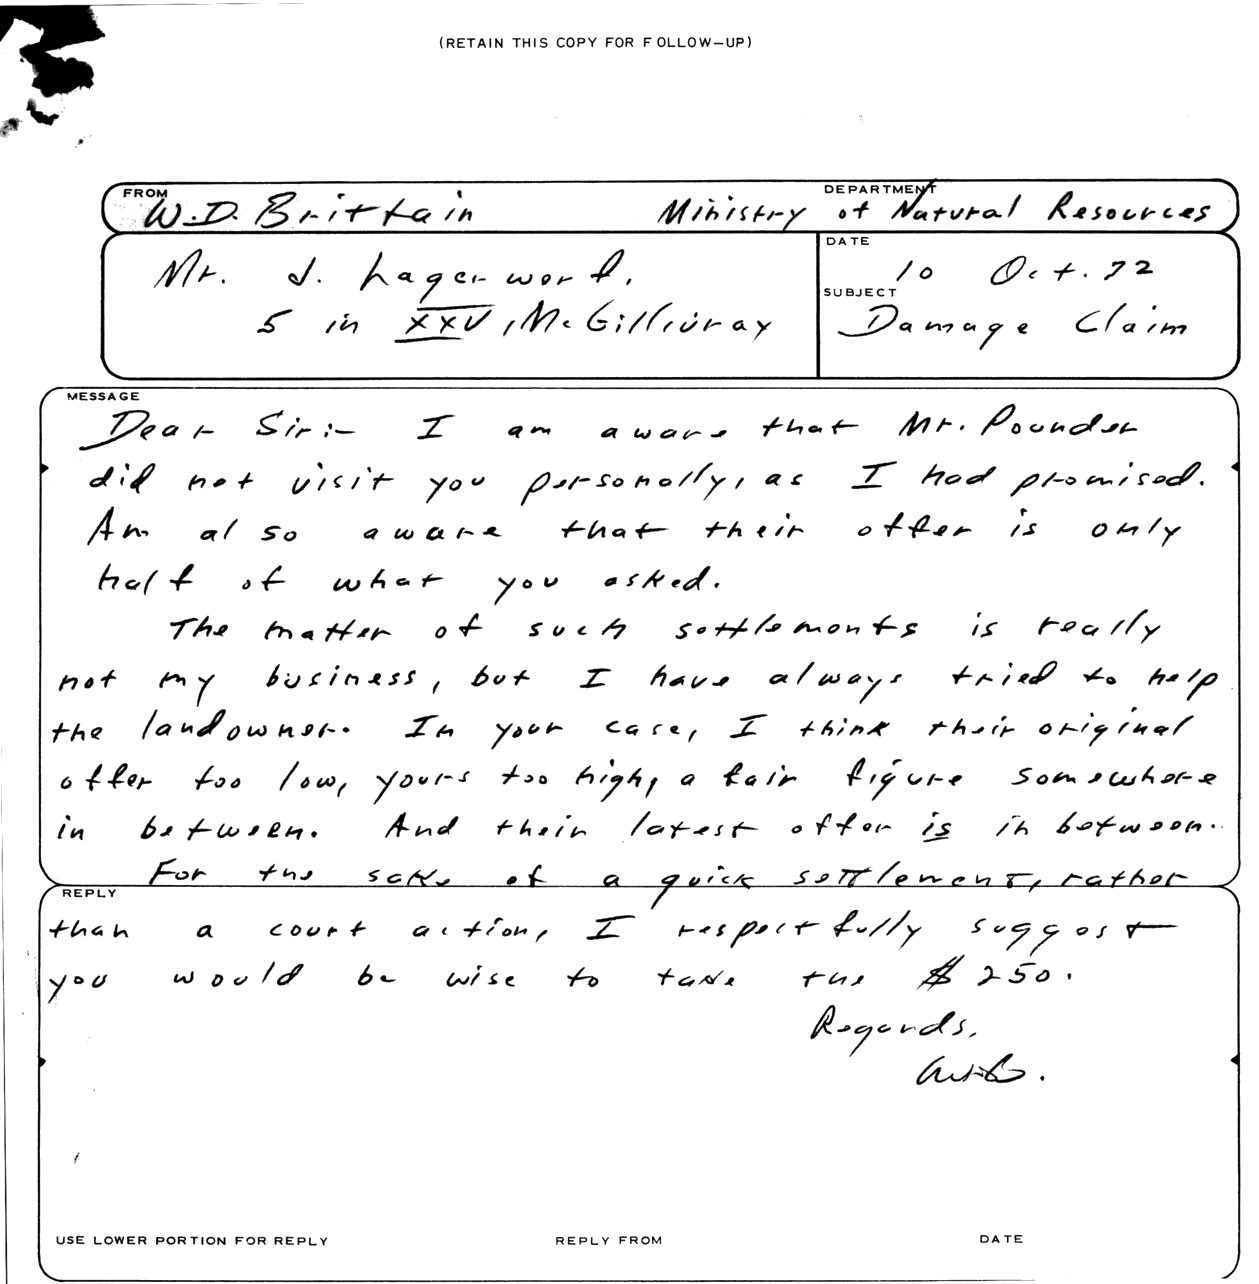 (RETAIN THIS COPY FOR FOLLOW-UP)
FROM
DEPARTMENT
W.D. Brittain Ministry of Natural Resources
Mr. J. Lagerwerf,
5 in XXV, McGillivray
DATE
10 Oct. 72
SUBJECT
Damage Claim
MESSAGE
Dear Sir:- I am aware that Mr. Pounder
did not visit you personally, as I had promised.
Am also aware that their offer is only
half of what you asked.
The matter of such settlements is really
not my business, but I have always tried to help
the landowner. In your case, I think their original
offer too low, yours too high, a fair figure somewhere
in between. And their latest offer is in between.
For the sake of a quick settlement, rather
REPLY
than a court action, I respectfully suggest
you would be wise to take the $250.
Regards,
USE LOWER PORTION FOR REPLY REPLY FROM DATE